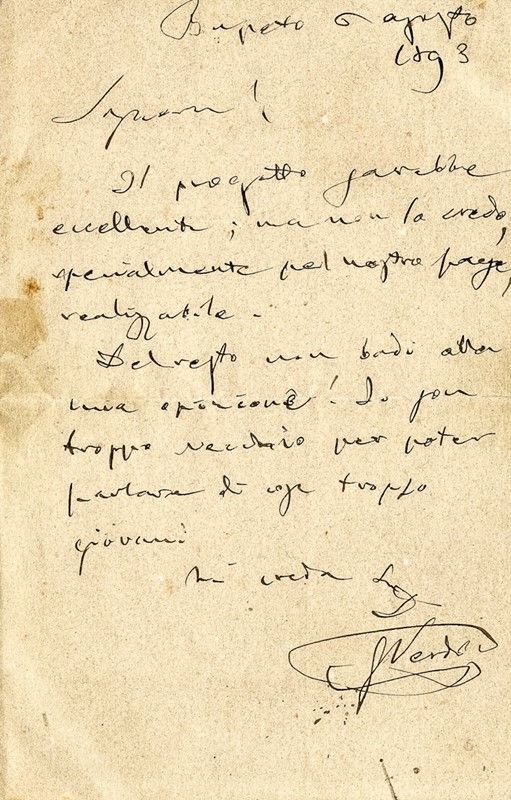 Busseto 6 agosto
1893
Signora!
Il progetto sarebbe
eccellente; ma non lo credo,
specialmente pel nostro paese,
realizzabile.
Del resto non badi alla
mia opinione! Io son
troppo vecchio per poter
parlare di cose troppo
giovani
Mi creda Suo
GVerdi